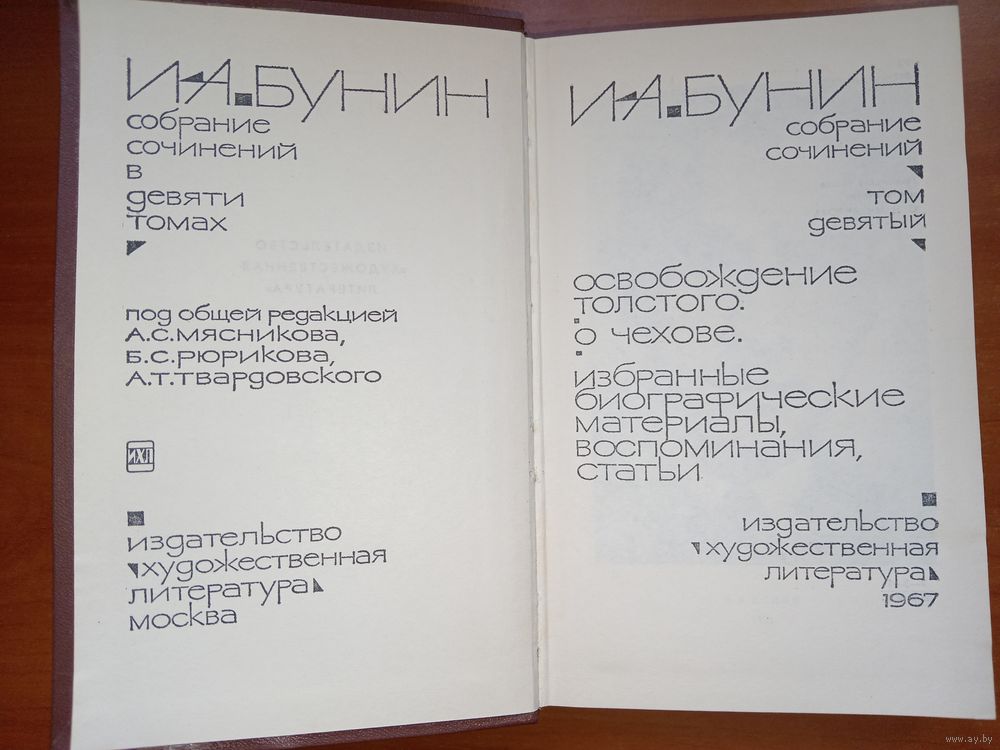 И.А.БУНИН
собрание
сочинений
в
девяти
томах
под общей редакцией
А.С.Мясникова,
Б.С.Рюрикова,
А.Т.Твардовского
ИХЛ
издательство
художественная
литература
москва
И.А.БУНИН
собрание
сочинений
том
девятый
освобождение
толстого.
о чехове.
избранные
биографические
материалы,
воспоминания,
статьи
издательство
художественная
литература
1967
www.ay.by